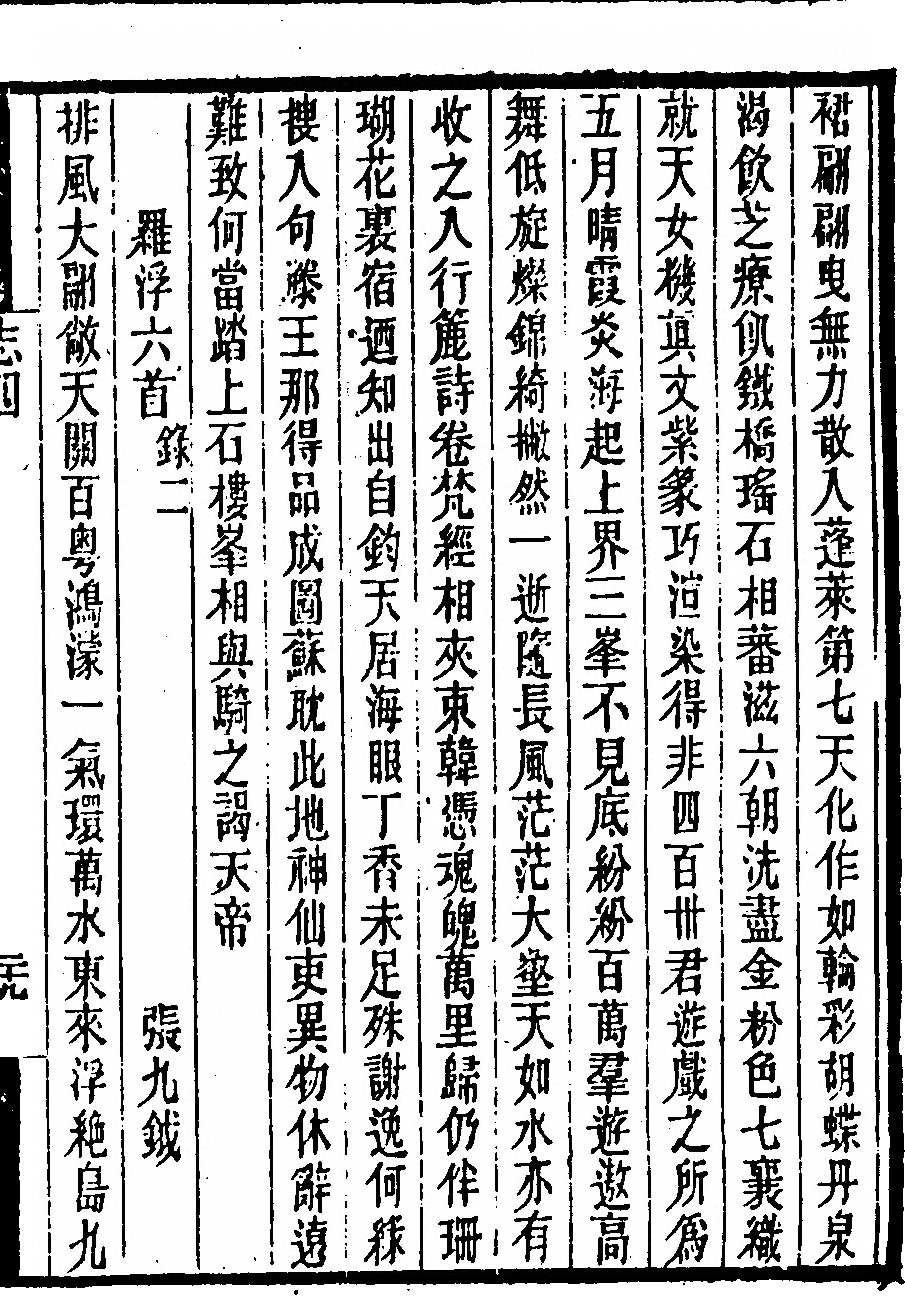 裙翩翩曳無力散入蓬萊第七天化作如輪彩胡蝶丹泉
渴飲芝療飢鐵橋瑤石相蕃滋六朝洗盡金粉色七襄織
就天女機眞文紫篆巧渲染得非四百卅君遊戲之所爲
五月晴霞炎海起上界三峯不見底紛紛百萬羣遊遨高
舞低旋燦錦綺撇然一逝隨長風茫茫大壑天如水亦有
收之入行簏詩卷梵經相夾束韓憑魂魄萬里歸仍伴珊
瑚花裏宿迺知出自鈞天居海眼丁香未足殊謝逸何緣
搜入句滕王那得品成圖蘇耽此地神仙吏異物休辭遠
難致何當踏上石樓峯相與騎之謁天帝
羅浮六首 錄二 張九鉞
排風大翮敞天關百粵鴻濛一氣環萬水東來浮絶島九
志四
元